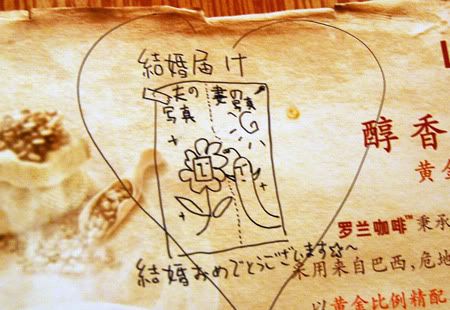 結婚届け
夫の
写真
妻の
写真
結婚おめでとうございます☆～
醇香
黄金
罗兰咖啡™ 秉承
采用来自巴西,危地
以黄金比例精配